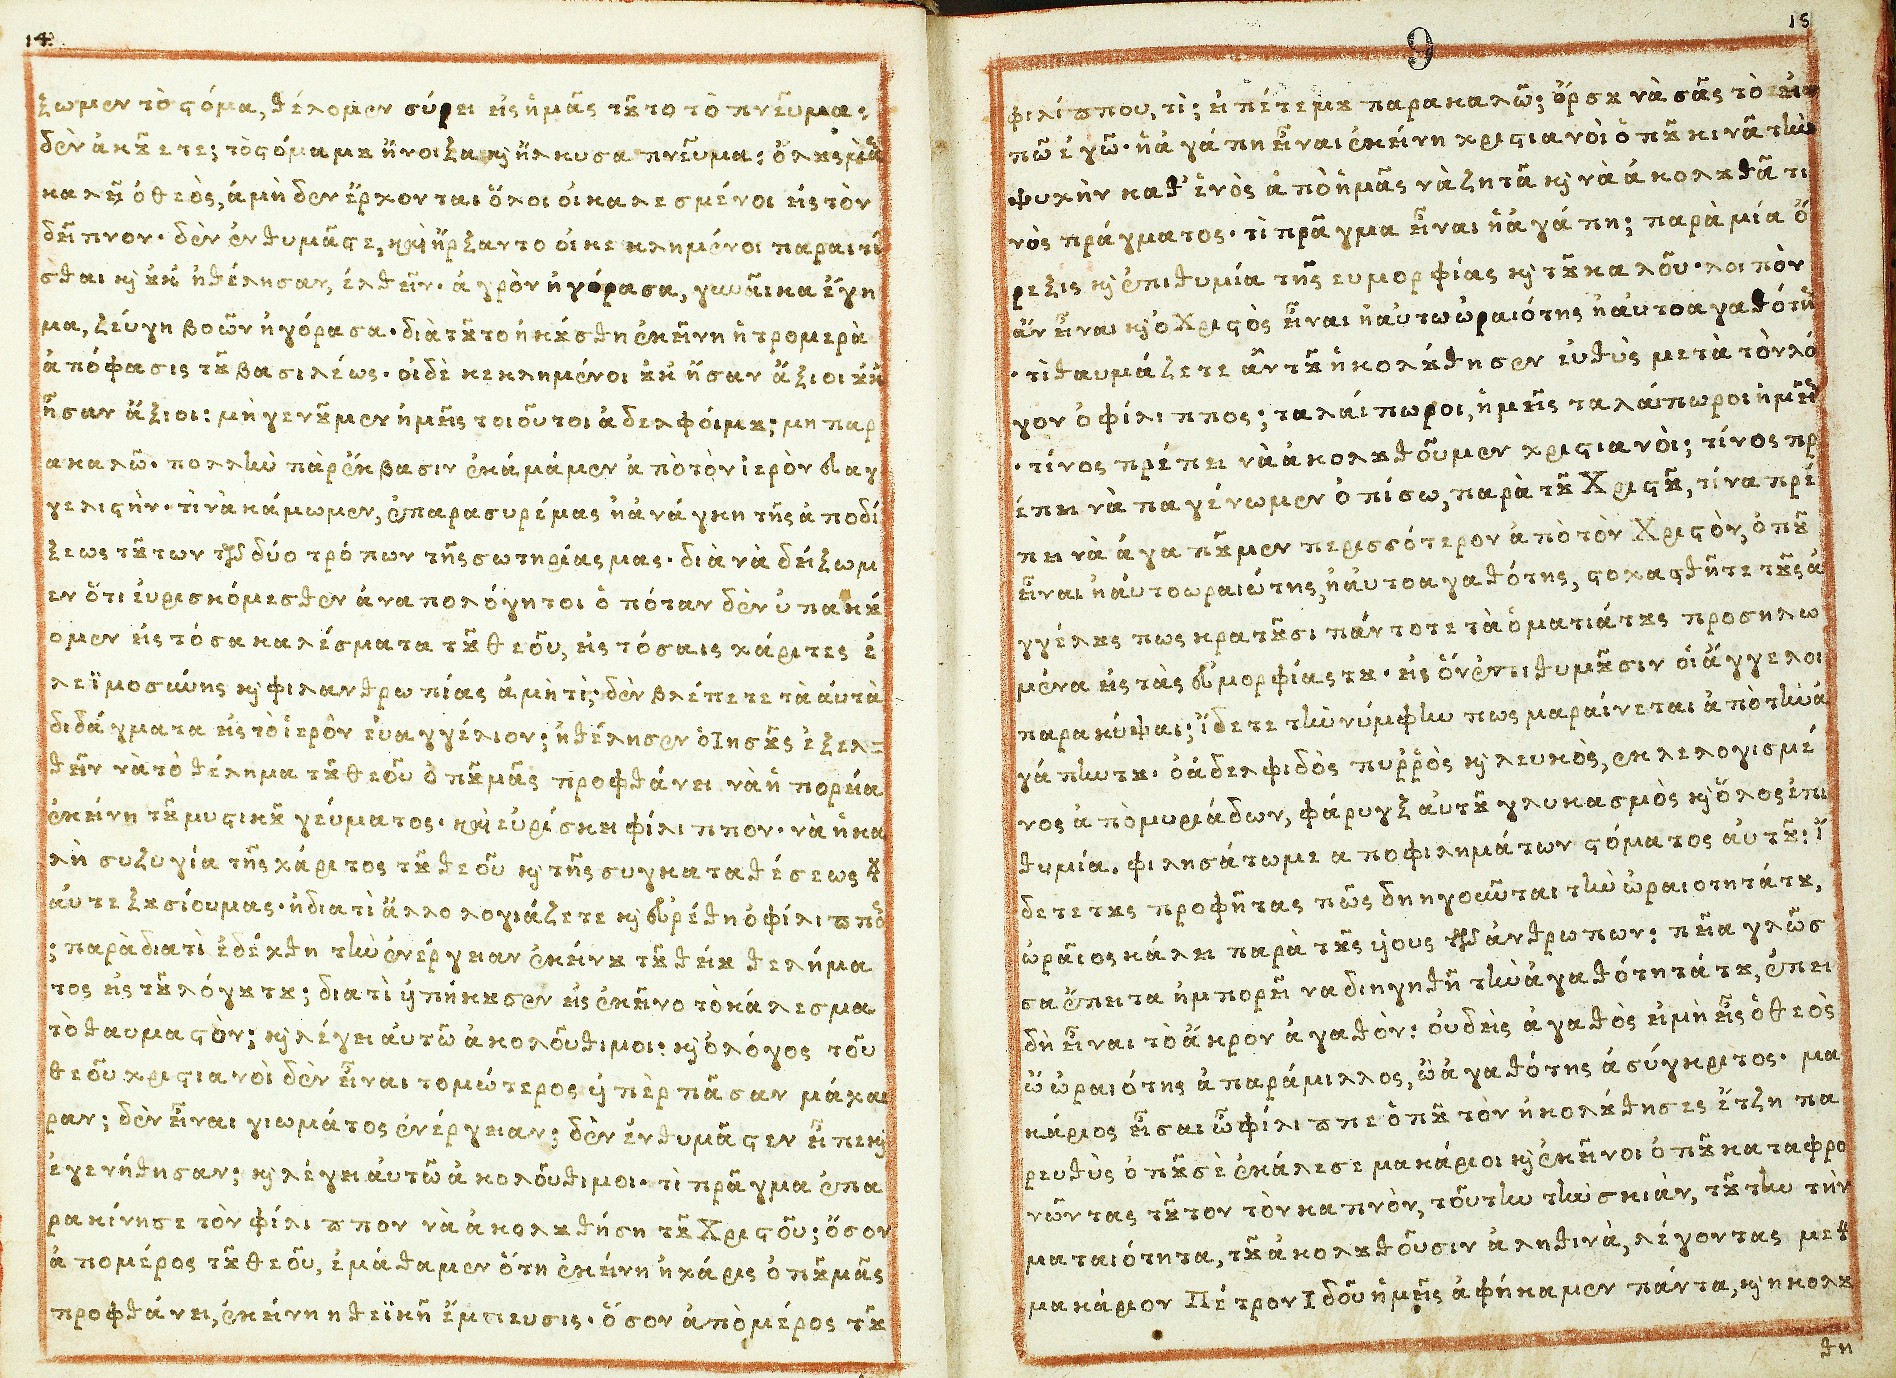 14
ξωμεν τὸ ϛόμα, θέλομεν σύρει εἰς ἡμᾶς τȣ̃το τὸ πνεῦμα ;
δὲν ἀκȣ́ετε; τὸ ϛόμα μȣ ἤνοιξα κὶ ἥλκυσα πνεῦμα: ὅλȣς μᾶς
καλεῖ ὁ θεὸς, ἀμὴ δεν ἔρχονται ὅλοι οἱ καλεσμένοι εἰς τὸν
δεῖπνον· δὲν ἐνθυμᾶϛε, καὶ ἤρξαντο οἱ κεκλημένοι παραιτεῖ
σθαι κὶ ȣ̓κ ἠθέλησαν, ἐλθεῖν· ἀγρὸν ἠγόρασα, γυναῖκα ἔγη
μα, ζεύγη βοῶν ἠγόρασα· διὰ τȣ̃το ἠκȣ́σθη ἐκείνη ἡ τρομερὰ
ἀπόφασις τȣ̃ βασιλέως· οἱ δὲ κεκλημένοι ȣ̓κ ἦσαν ἄξιοι ȣ̓κ
ἦσαν ἄξιοι: μὴ γενȣ̃μεν ἡμεῖς τοιοῦτοι ἀδελφοίμȣ; μη παρ
ακαλῶ· πολλὴν πὰρέκβασιν ἐκάμάμεν ἀπὸ τὸν ἱερὸν εὐαγ
γελιϛὴν· τὶ νὰ κάμωμεν, ἐπαρασυρέ μας ἡ ἀνάγκη τῆς ἀποδεί
ξεως τȣ́των τῶν δύο τρόπων τῆς σωτηρίας μας· διὰ νὰ δείξωμ
εν ὅτι ἑυρισκόμεσθεν ἀναπολόγητοι ὁπόταν δὲν ὑπακȣ́
ομεν εἰς τόσα καλέσματα τȣ̃ θεοῦ, εἰς τόσαις χάριτες ἐ
λεϊμοσύνης κὶ φιλανθρωπίας ἀμὴ τὶ; δὲν βλέπετε τὰ ἀυτὰ
διδάγματα εἰς τὸ ἱερὸν ἐυαγγέλιον; ἠθέλησεν ὁ Ἰησȣ̃ς ἐξελ-
θεῖν νὰ τὸ θέλημα τȣ̃ θεοῦ ὁπȣ̃ μᾶς προφθάνει νὰ ἡ πορεία
ἐκείνη τȣ̃ μυϛικȣ̃ γεύματος· καὶ εὑρίσκει φίλιππον· νὰ ἡ κα
λὴ συζυγία τῆς χάριτος τȣ̃ θεοῦ κὶ τῆς συγκαταθέσεως τȣ̃
ἀυτεξȣσίου μας· ἠ διατὶ ἄλλο λογιάζετε κὶ εὑρέθη ὁ φίλιππος
; παρὰ διατὶ ἐδέχθη τὴν ἐνέργειαν ἐκείνȣ τȣ̃ θείȣ θελήμα
τος εἰς τȣ̃ λόγȣ τȣ; διατὶ ὑπήκȣσεν εἰς ἐκεῖνο τὸ κάλεσμα
τὸ θαυμαϛὸν; κὶ λέγει ἀυτῶ ἀκολοῦθι μοι: κὶ ὁ λόγος τοῦ
θεοῦ χριϛιανοὶ δὲν εἶναι τομώτερος ὑπὲρ πᾶσαν μάχαι
ραν; δὲν εἶναι γιωμάτος ἐνέργειαν; δὲν ἐνθυμᾶϛεν εἶπε κὶ
ἐγενήθησαν; κὶ λέγει ἀυτῶ ἀκολοῦθι μοι· τὶ πρᾶγμα ἐπα
ρακίνησε τὸν φίλιππον νὰ ἀκολȣθήση τȣ̃ Χριϛοῦ; ὅσον
ἀπομέρος τȣ̃ θεοῦ, ἐμάθαμεν ὅτη ἐκείνη ἡ χάρις ὁπȣ̃ μᾶς
προφθάνει, ἐκείνη η θεϊκὴ ἔμπευσις· ὅσον ἀπὸ μέρος τȣ̃
15
9
φιλίππου, τὶ; εἰπέτε μȣ παρακαλῶ; ὅρσȣ νὰ σᾶς τὸ εἰ
πῶ ἐγῶ· ἡ ἀγάπη εἶναι ἐκείνη χριϛιανοὶ ὁπȣ̃ κινᾶ τὴν
ψυχὴν καθ' ἑνὸς ἀπὸ ἡμᾶς νὰ ζητᾶ κὶ νὰ ἀκολȣθᾶ τι
νὸς πράγματος· τὶ πρᾶγμα εἶναι ἡ ἀγάπη; παρὰ μία ὄ
ρεξις κὶ ἐπιθυμία τῆς ευμορφίας κὶ τȣ̃ καλοῦ· λοιπὸν
ἂν εἶναι κὶ ὁ Χριϛὸς εἶναι ἡ αὐτωὡραιότης ἡ αὐτοαγαθότη
· τὶ θαυμάζετε ἂν τȣ̃ ἠκολȣ́θησεν ἐυθὺς μετὰ τὸν λό
γον ὁ φίλιππος; ταλάιπωροι, ἡμεῖς ταλάιπωροι ἡμεῖς
· τίνος πρέπει νὰ ἀκολȣθοῦμεν χριϛιανοὶ; τίνος πρ
έπει νὰ παγένωμεν ὀπίσω, παρὰ τȣ̃ Χριϛȣ̃, τίνα πρέ
πει νὰ ἀγαπȣ̃μεν περισσότερον ἀπὸ τὸν Χριϛὸν, ὁπȣ̃
εἶναι ἡ ἀυτοωραιώτης, ἡ ἀυτοαγαθότης, ϛοχαϛθῆτε τȣ̀ς ἀ
γγέλȣς πως κρατȣ̃σι πάντοτε τὰ ὀματιά τȣς προσηλω
μένα εἰς τὰς εὐμορφίας τȣ· εἰς ὅν ἐπιθυμȣ̃σιν ὁἱ ἄγγελοι
παρακύψαι; ἴδετε τὴν νύμφην πως μαραίνεται ἀπὸ τὴν ἀ
γάπην τȣ· ὁ ἀδελφιδὸς πυῤῥὸς κὶ λευκὸς, ἐκλελογισμέ
νος ἀπὸ μυριάδων, φάρυγξ ἀυτȣ̃ γλυκασμὸς κὶ ὅλος ἐπι
θυμία. φιλησάτω με απο φιλημάτων ϛόματος ἀυτȣ̃: ἴ
δετε τȣς προφῆτας πῶς διηγοῦνται τὴν ὡραιοτητά τȣ,
ὡραῖος κάλει παρὰ τȣ̀ς ὑιους τῶν ἀνθρωπων: ποῖα γλῶσ
σα ἔπειτα ἠμπορεῖ να διηγηθῆ τὴν ἀγαθότητά τȣ, ἐπει
δὴ εἶναι τὸ ἄκρον ἀγαθὸν: ὀυδεὶς ἀγαθὸς εἰμὴ εἷς ὁ θεὸς
ὢ ὡραιότης ἀπαράμιλλος, ὢ ἀγαθότης ἀσύγκριτος· μα
κάριος εἶσαι ὦ φίλιππε ὁπȣ̃ τὸν ἠκολȣ́θησες ἔτζη πα
ρευθὺς ὁπȣ̃ σὲ ἐκάλεσε μακάριοι κὶ ἐκεῖνοι ὁπȣ̃ καταφρο
νῶντας τȣ̃τον τὸν καπνὸν, τοῦτην τὴν σκιὰν, τȣ́την τὴν
ματαιότητα, τȣ̃ ἀκολȣθοῦσιν ἀληθινὰ, λέγοντας με τὸν
μακάριον Πέτρον Ἰδοῦ ἡμεῖς ἀφήκαμεν πάντα, κὶ ηκολȣ
θη